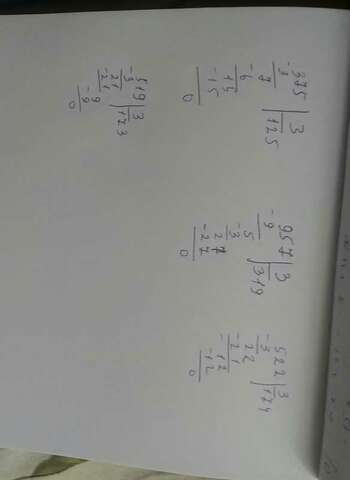 -375 | 3
3 | 125
7
-6
15
-15
0
957 | 3
-9 | 319
5
-3
27
-27
0
522 | 3
-3 | 124
22
-21
12
-12
0
519 | 3
-3 | 123
21
-21
9
-9
0